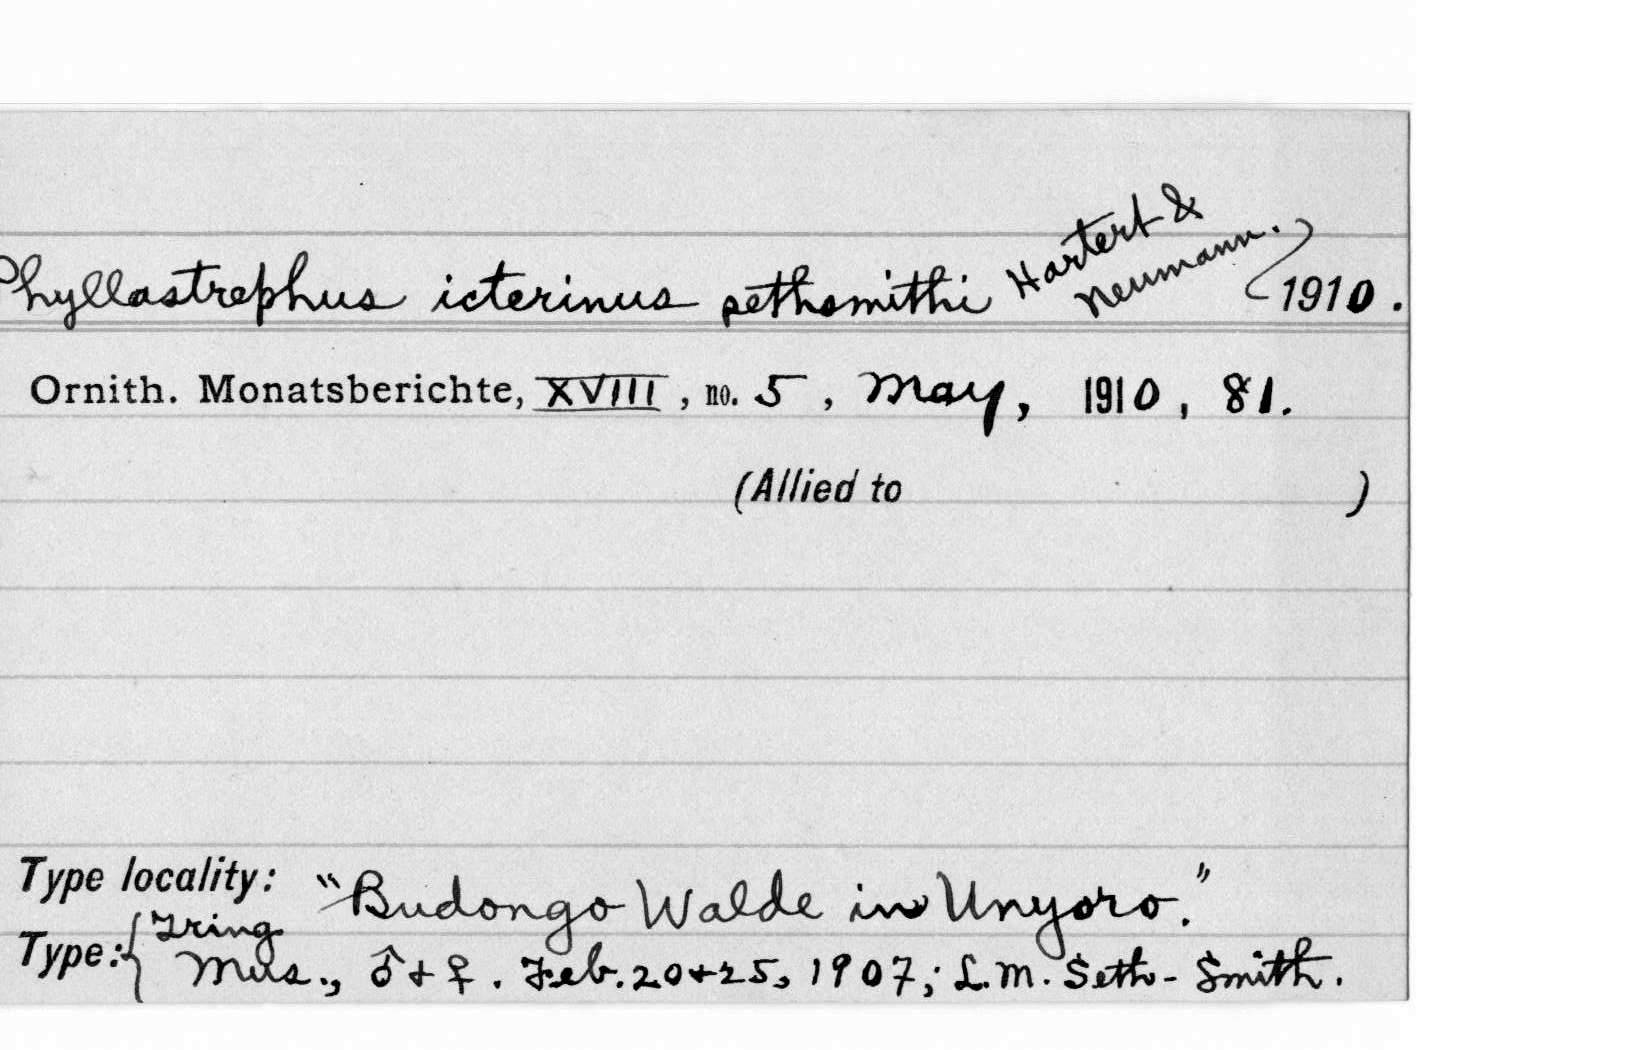 Phyllastrephus icterinus sethsmithi Hartert & Neumann. 1910.
Ornith. Monatsberichte, XVIII, no. 5, May, 1910, 81.
(Allied to )
Type locality: "Budongo Walde in Unyoro."
Type: { Tring
Mus., ♂ + ♀. Feb. 20+25, 1907; L.M. Seth-Smith.